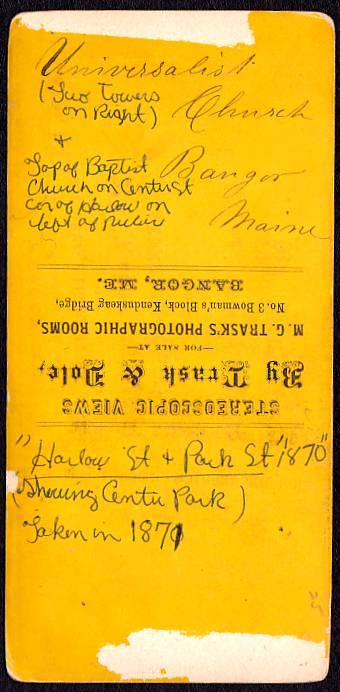 Universalist
(Two Towers
on Right)
Church
+
Top of Baptist
Church on Center St
cor of Harlow on
left of picture
Bangor
Maine
STEREOSCOPIC VIEWS
By Trask & Dole,
—FOR SALE AT—
M. G. TRASK'S PHOTOGRAPHIC ROOMS,
No. 3 Bowman's Block, Kenduskeag Bridge,
BANGOR, ME.
"Harlow St + Park St "1870"
(Showing Center Park)
Taken in 1871